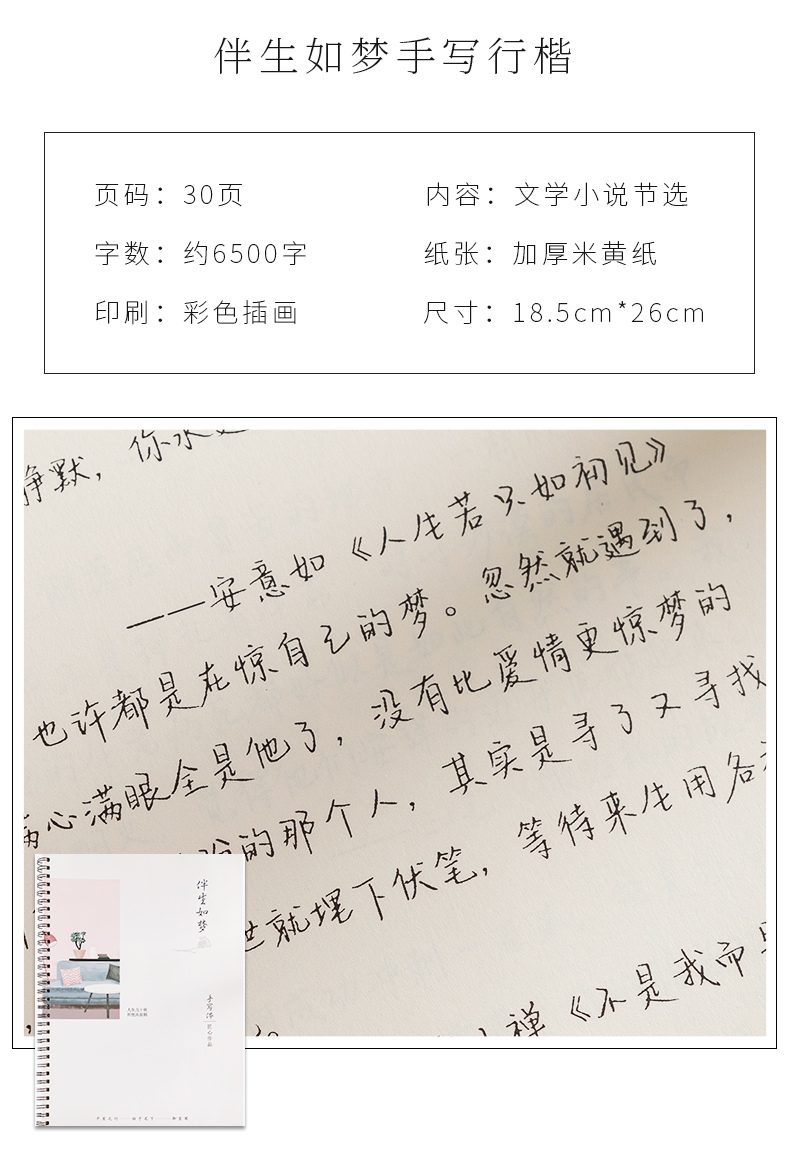 伴生如梦手写行楷
页码：30页
内容：文学小说节选
字数：约6500字
纸张：加厚米黄纸
印刷：彩色插画
尺寸：18.5cm*26cm
静默，你永远
——安意如《人生若只如初见》
也许都是在惊自己的梦。忽然就遇到了，
满心满眼全是他了，没有比爱情更惊梦的
的那个人，其实是寻了又寻找
世就埋下伏笔，等待来生用各
禅《不是我而是
伴生如梦
手写体
匠心作品